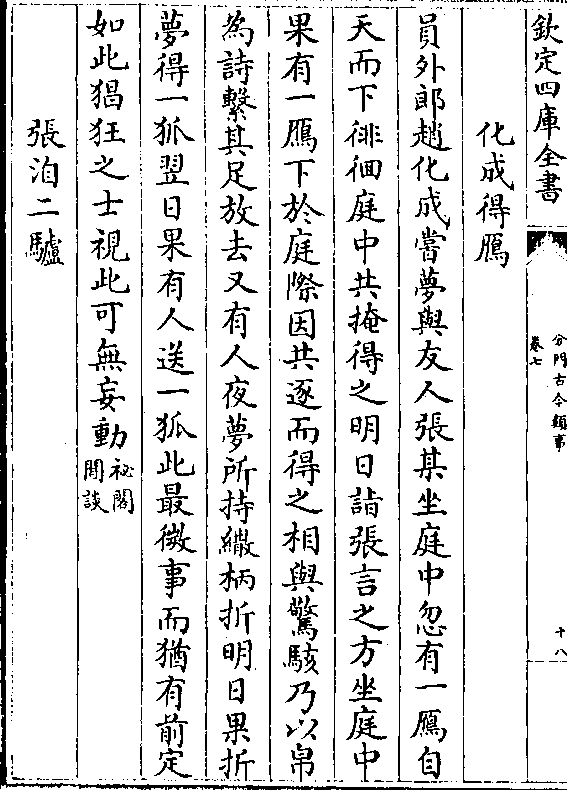 欽定四庫全書
分門古今類事
卷七
十八
化成得鴈
員外郎趙化成嘗夢與友人張某坐庭中忽有一鴈自
天而下徘徊庭中共掩得之明日詣張言之方坐庭中
果有一鴈下於庭際因共逐而得之相與驚駭乃以帛
為詩繫其足放去又有人夜夢所持繖柄折明日果折
夢得一狐翌日果有人送一狐此最微事而猶有前定
如此猖狂之士視此可無妄動祕閣
閒談
張洎二驢